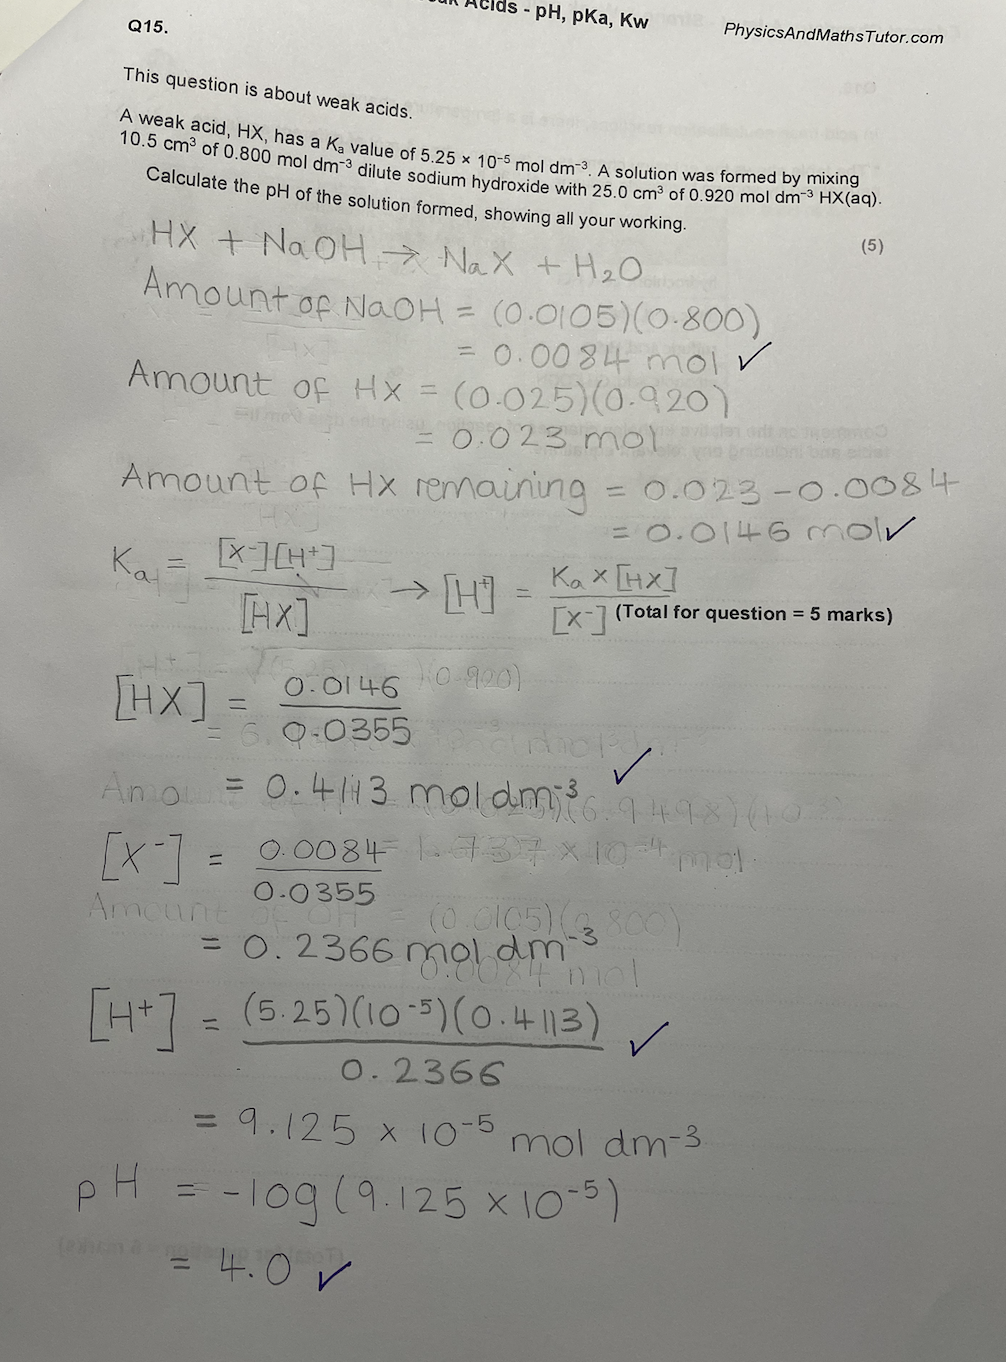 Acids - pH, pKa, Kw
PhysicsAndMathsTutor.com
Q15.
This question is about weak acids.
A weak acid, HX, has a Kₐ value of 5.25 × 10⁻⁵ mol dm⁻³. A solution was formed by mixing
10.5 cm³ of 0.800 mol dm⁻³ dilute sodium hydroxide with 25.0 cm³ of 0.920 mol dm⁻³ HX(aq).
Calculate the pH of the solution formed, showing all your working.
(5)
HX + NaOH → NaX + H₂O
Amount of NaOH = (0.0105)(0.800)
= 0.0084 mol ✓
Amount of HX = (0.025)(0.920)
= 0.023 mol
Amount of HX remaining = 0.023 - 0.0084
= 0.0146 mol ✓
Kₐ = [X⁻][H⁺] / [HX] → [H⁺] = Kₐ × [HX] / [X⁻]
(Total for question = 5 marks)
[HX] = 0.0146 / 0.0355
= 0.4113 mol dm⁻³ ✓
[X⁻] = 0.0084 / 0.0355
= 0.2366 mol dm⁻³
[H⁺] = (5.25)(10⁻⁵)(0.4113) / 0.2366 ✓
= 9.125 × 10⁻⁵ mol dm⁻³
pH = -log(9.125 × 10⁻⁵)
= 4.0 ✓